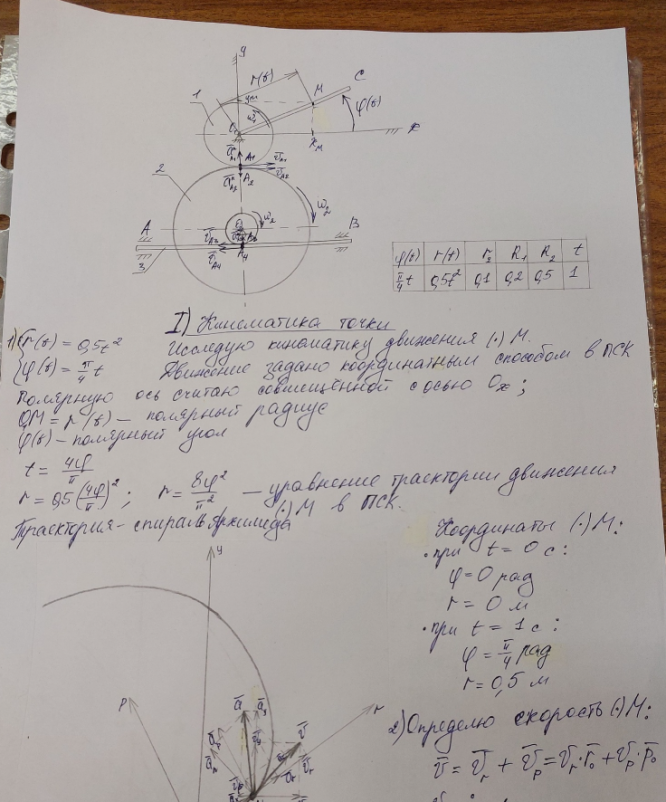 y
r(t)
M
C
1
φ(t)
O₁
x
x_M
A₁
A₂
2
ω₂
ω₂
A
B
3
φ(t) r(t) r₂ R₁ R₂ t
π/4 t 0,5t² 0,1 0,2 0,5 1
I) Кинематика точки
1) { r(t) = 0,5t² Исследую кинематику движения (·) M.
φ(t) = π/4 t Движение задано координатным способом в ПСК
Полярную ось считаю совмещённой с осью Ox;
OM = r(t) – полярный радиус
φ(t) – полярный угол
t = 4φ/π
r = 0,5(4φ/π)²; r = 8φ²/π² — уравнение траектории движения
(·) M в ПСК.
Траектория – спираль Архимеда
Координаты (·) M:
· при t = 0 с:
φ = 0 рад
r = 0 м
· при t = 1 с:
φ = π/4 рад
r = 0,5 м
y
p
r
2) Определю скорость (·) M:
v̄ = v̄_r + v̄_p = v_r · r̄₀ + v_p · p̄₀